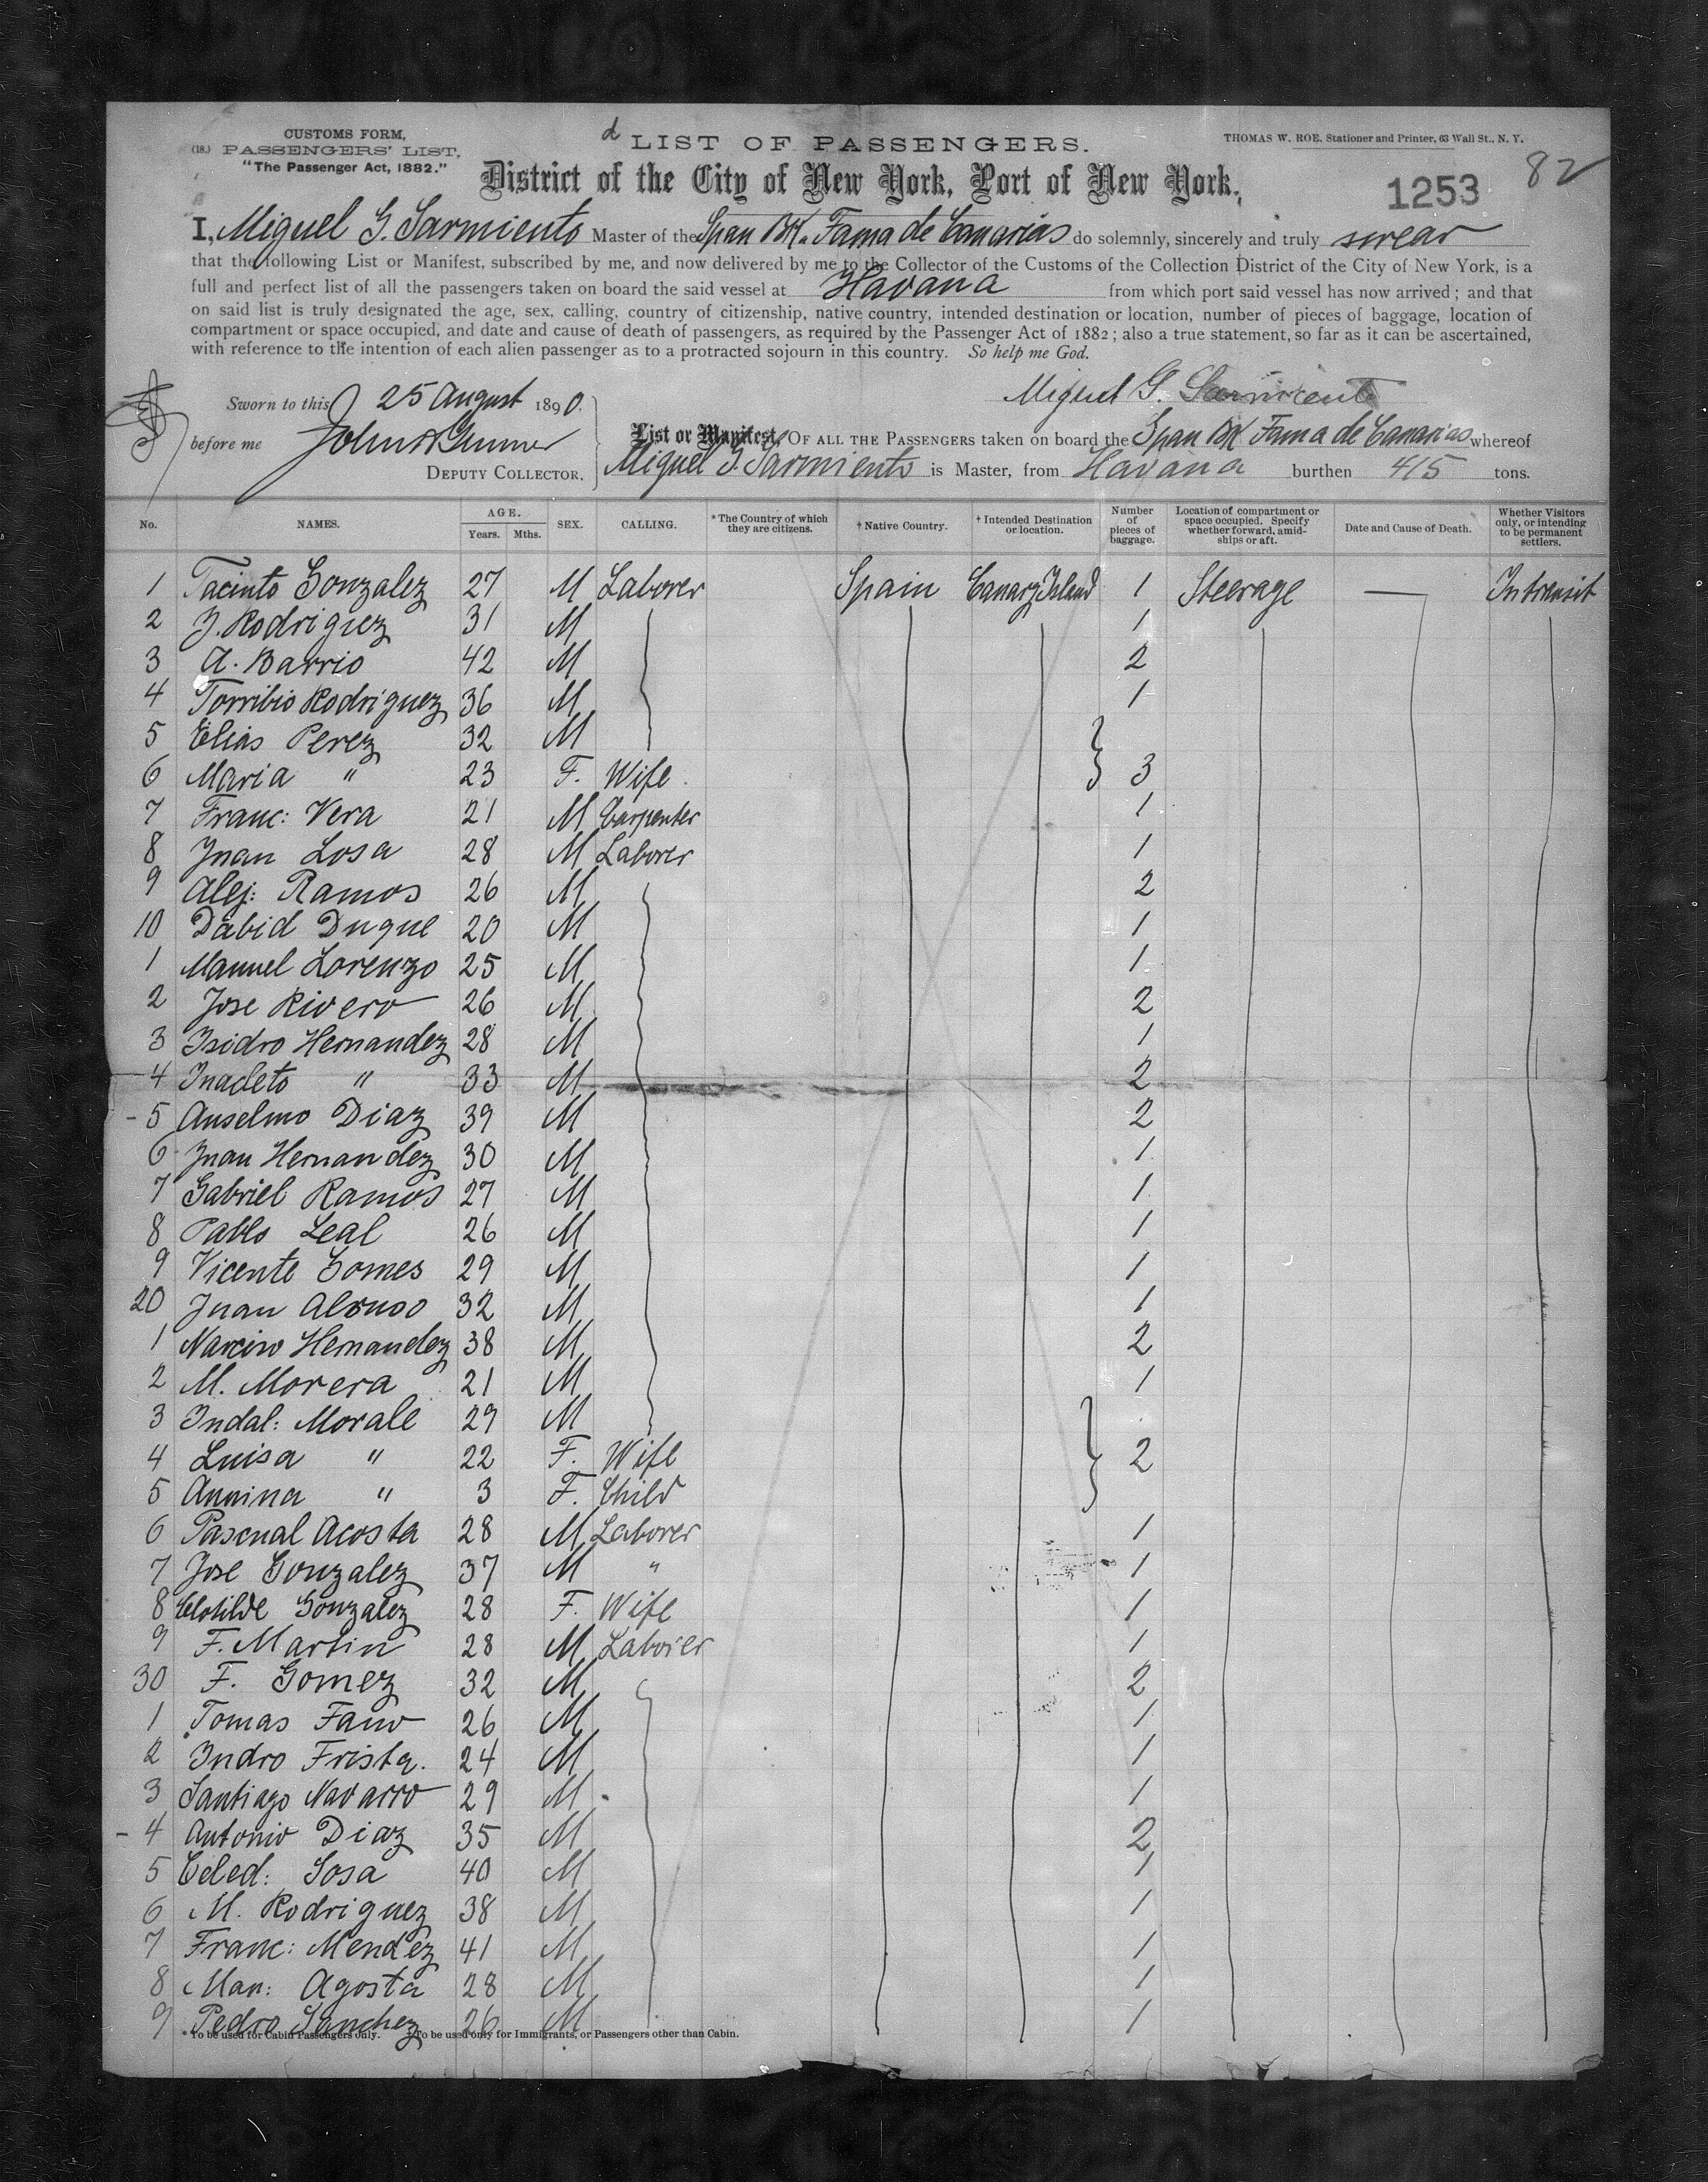 CUSTOMS FORM,
(18.) PASSENGERS' LIST,
"The Passenger Act, 1882."
d LIST OF PASSENGERS.
THOMAS W. ROE, Stationer and Printer, 63 Wall St., N. Y.
District of the City of New York, Port of New York.
1253
82
I, Miguel G. Sarmiento Master of the Span Bk. Fama de Canarias do solemnly, sincerely and truly swear
that the following List or Manifest, subscribed by me, and now delivered by me to the Collector of the Customs of the Collection District of the City of New York, is a
full and perfect list of all the passengers taken on board the said vessel at Havana from which port said vessel has now arrived; and that
on said list is truly designated the age, sex, calling, country of citizenship, native country, intended destination or location, number of pieces of baggage, location of
compartment or space occupied, and date and cause of death of passengers, as required by the Passenger Act of 1882; also a true statement, so far as it can be ascertained,
with reference to the intention of each alien passenger as to a protracted sojourn in this country. So help me God.
Miguel G. Sarmiento
Sworn to this 25 August 1890.
before me
DEPUTY COLLECTOR.
List or Manifest, OF ALL THE PASSENGERS taken on board the Span Bk Fama de Canarias whereof
Miguel G. Sarmiento is Master, from Havana burthen 415 tons.
No. NAMES. AGE. Years. Mths. SEX. CALLING. *The Country of which they are citizens. †Native Country. †Intended Destination or location. Number of pieces of baggage. Location of compartment or space occupied. Specify whether forward, amidships or aft. Date and Cause of Death. Whether Visitors only, or intending to be permanent settlers.
1 Jacinto Gonzalez 27 M Laborer Spain Canary Island 1 Steerage — In transit
2 J. Rodriguez 31 M 1
3 A. Barrio 42 M 2
4 Torribio Rodriguez 36 M 1
5 Elias Perez 32 M
6 Maria " 23 F. Wife 3
7 Franc: Vera 21 M Carpenter 1
8 Juan Losa 28 M Laborer 1
9 Alej: Ramos 26 M 2
10 Dabid Duque 20 M 1
1 Manuel Lorenzo 25 M 1
2 Jose Rivero 26 M 2
3 Isidro Hernandez 28 M 1
4 Inacleto " 33 M 2
- 5 Anselmo Diaz 39 M 2
6 Juan Hernandez 30 M 1
7 Gabriel Ramos 27 M 1
8 Pablo Leal 26 M 1
9 Vicente Gomes 29 M 1
20 Juan Alonso 32 M 1
1 Narciso Hernandez 38 M 2
2 M. Morera 21 M 1
3 Indal: Morale 29 M
4 Luisa " 22 F. Wife 2
5 Annina " 3 F. Child
6 Pascual Acosta 28 M Laborer 1
7 Jose Gonzalez 37 M " 1
8 Clotilde Gonzalez 28 F. Wife 1
9 F. Martin 28 M Laborer 1
30 F. Gomez 32 M 2
1 Tomas 26 M 1
2 24 M 1
3 Santiago Navarro 29 M 1
- 4 Antonio Diaz 35 M 2
5 Celed: Sosa 40 M 1
6 M. Rodriguez 38 M 1
7 Franc: Mendez 41 M 1
8 Man: Agosta 28 M 1
9 Pedro Sanchez 26 M 1
*To be used for Cabin Passengers only. †To be used only for Immigrants, or Passengers other than Cabin.